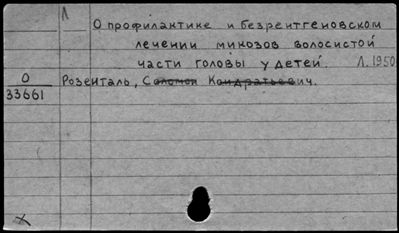 Л
О профилактике и безрентгеновском
лечении микозов волосистой
части головы у детей. Л. 1950
О
33661
Розенталь, Соломон Кондратьевич.
X